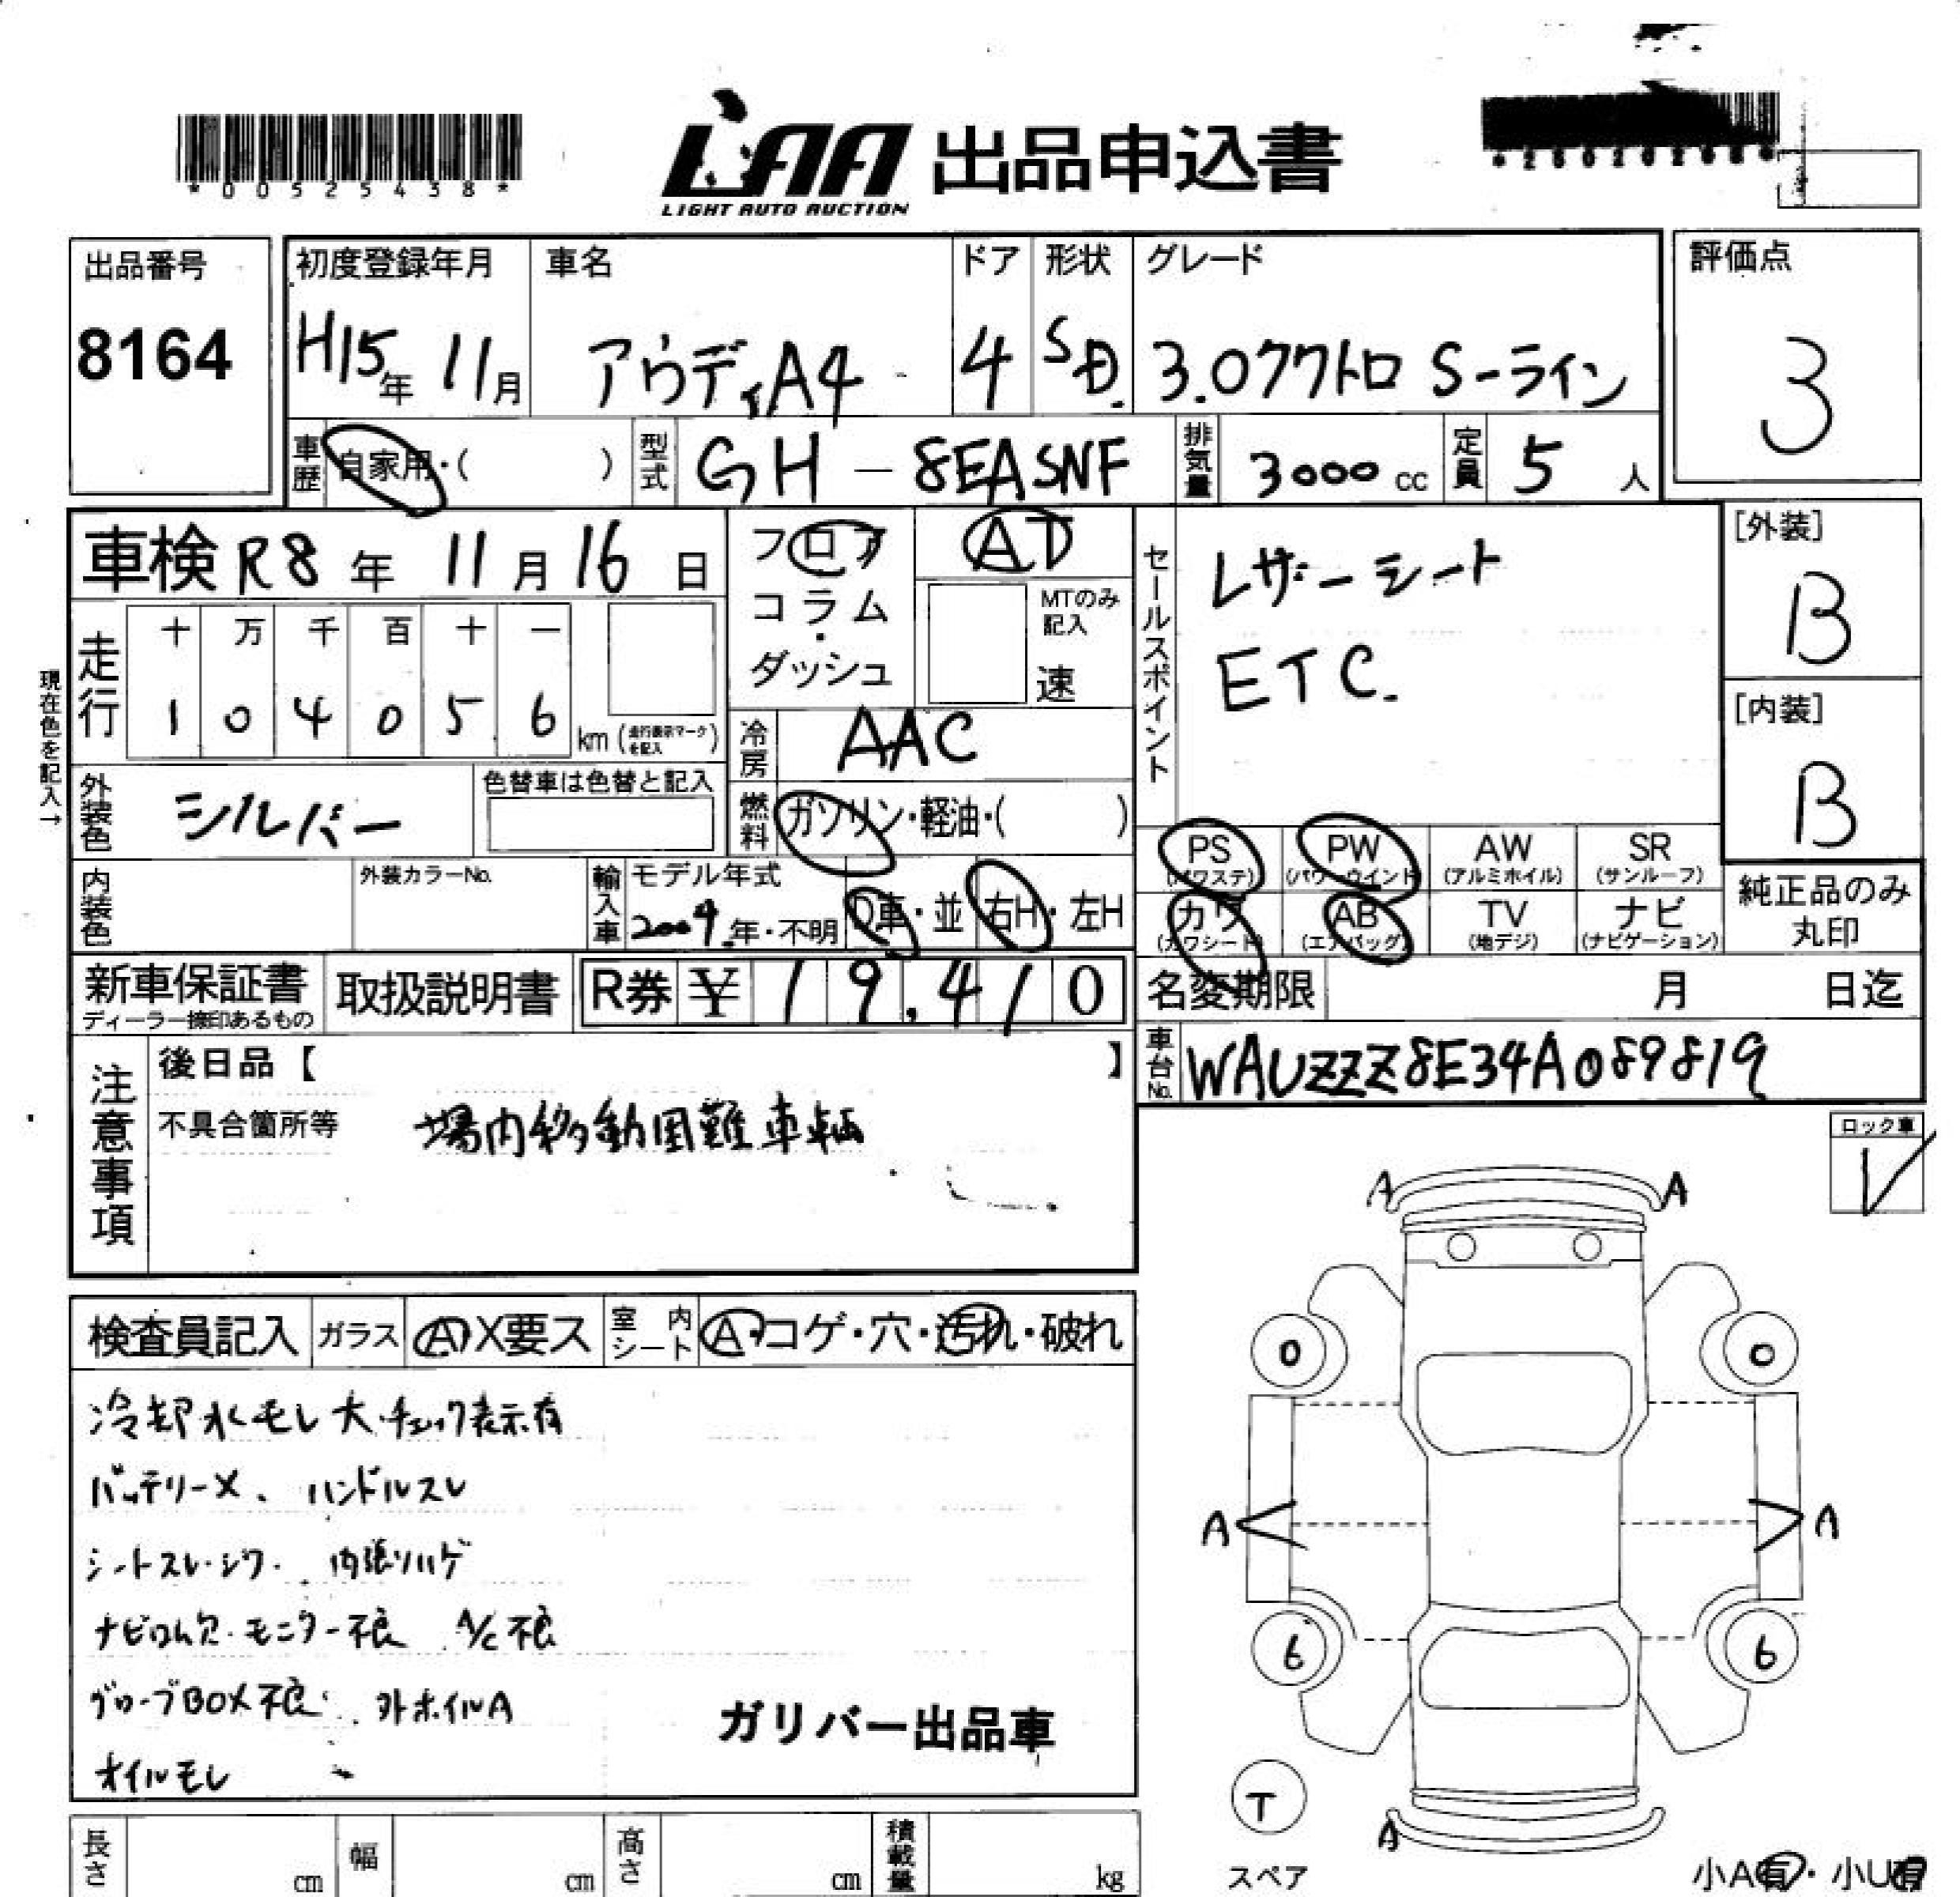 *00525438*
LAA 出品申込書
LIGHT AUTO AUCTION
出品番号
8164
初度登録年月
H15年 11月
車名
アウディA4
ドア
4
形状
SD
グレード
3.0クワトロ S-ライン
評価点
3
車歴 自家用・( )
型式 GH-8EASNF
排気量 3000 cc
定員 5 人
車検 R8年 11月16日
フロア
コラム
・
ダッシュ
AT
MTのみ
記入
速
セールスポイント
レザーシート
ETC.
[外装]
B
[内装]
B
現在色を記入→
走行
十 万 千 百 十 一
1 0 4 0 5 6 km (走行表示マークを記入)
冷房 AAC
外装色 シルバー
色替車は色替と記入
燃料 ガソリン・軽油・( )
PS
(パワステ)
PW
(パワーウインド)
AW
(アルミホイル)
SR
(サンルーフ)
カワ
(カワシート)
AB
(エアバッグ)
TV
(地デジ)
ナビ
(ナビゲーション)
純正品のみ
丸印
内装色
外装カラーNo.
輸入車
モデル年式
2004年・不明
D車・並
右H・左H
新車保証書
ディーラー捺印あるもの
取扱説明書
R券 ¥ 19,410
名変期限 月 日迄
車台No. WAUZZZ8E34A089819
注意事項
後日品【 】
不具合箇所等 場内移動困難車輌
ロック車
検査員記入
ガラス A X要ス
室内シート A・コゲ・穴・汚れ・破れ
冷却水モレ大・チェック表示有
バッテリーX、ハンドルスレ
シートスレ・シワ. 内張リハゲ
ナビロム欠・モニター不良 A/C不良
グローブBOX不良 外ホイルA
オイルモレ
ガリバー出品車
A A
0 0
A A
6 6
T
スペア
A
小A有・小U有
長さ cm
幅 cm
高さ cm
積載量 kg